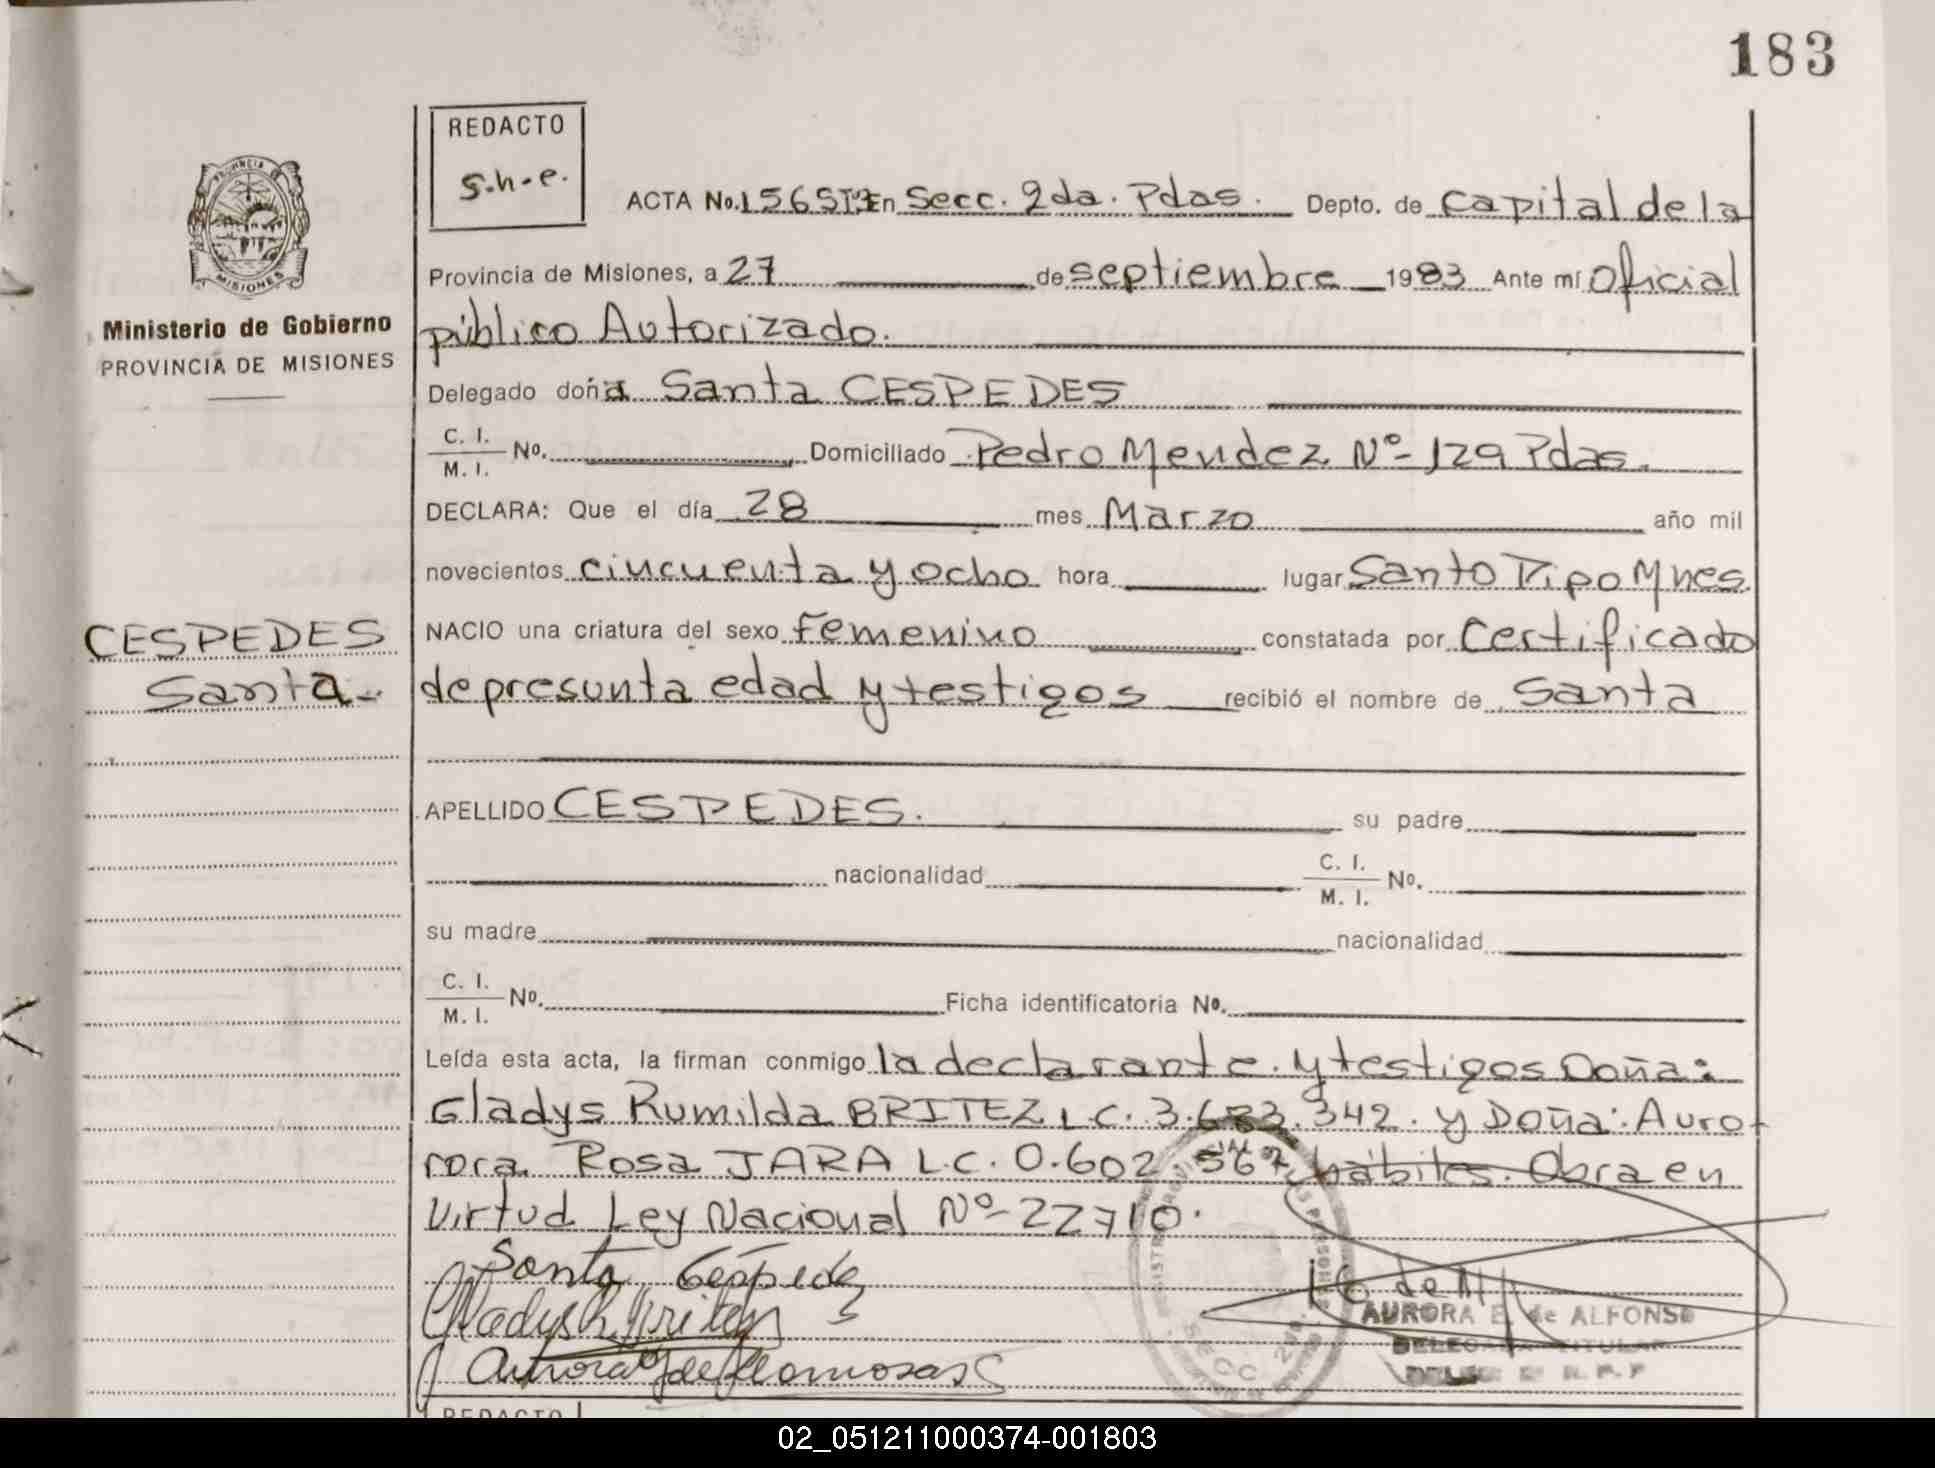 183
REDACTO
S.h.e.
ACTA No. 156 En Secc. 2da. Pdas. Depto. de Capital de la
Provincia de Misiones, a 27 de septiembre 1983 Ante mí Oficial
público Autorizado.
Delegado doña Santa CESPEDES
C. I.
M. I. No. Domiciliado Pedro Mendez Nº 129 Pdas.
DECLARA: Que el día 28 mes Marzo año mil
novecientos cincuenta y ocho hora lugar Santo Pipo Mnes.
NACIO una criatura del sexo femenino constatada por Certificado
de presunta edad y testigos recibió el nombre de Santa
APELLIDO CESPEDES. su padre
nacionalidad C. I.
M. I. No.
su madre nacionalidad
C. I.
M. I. No. Ficha identificatoria No.
Leída esta acta, la firman conmigo la declarante. y testigos Doña:
Gladys Rumilda BRITEZ L.C. 3.683.342. y Doña: Auro-
rora Rosa JARA L.C. 0.602.567 hábiles. Obra en
virtud Ley Nacional Nº 22710.
Santa Cespedez
Aurora J de Llamosas
SECC. 2da.
AURORA E. de ALFONSO
DELEGADA TITULAR
PROVINCIA
MISIONES
Ministerio de Gobierno
PROVINCIA DE MISIONES
CESPEDES
Santa.
REDACTO
02_051211000374-001803